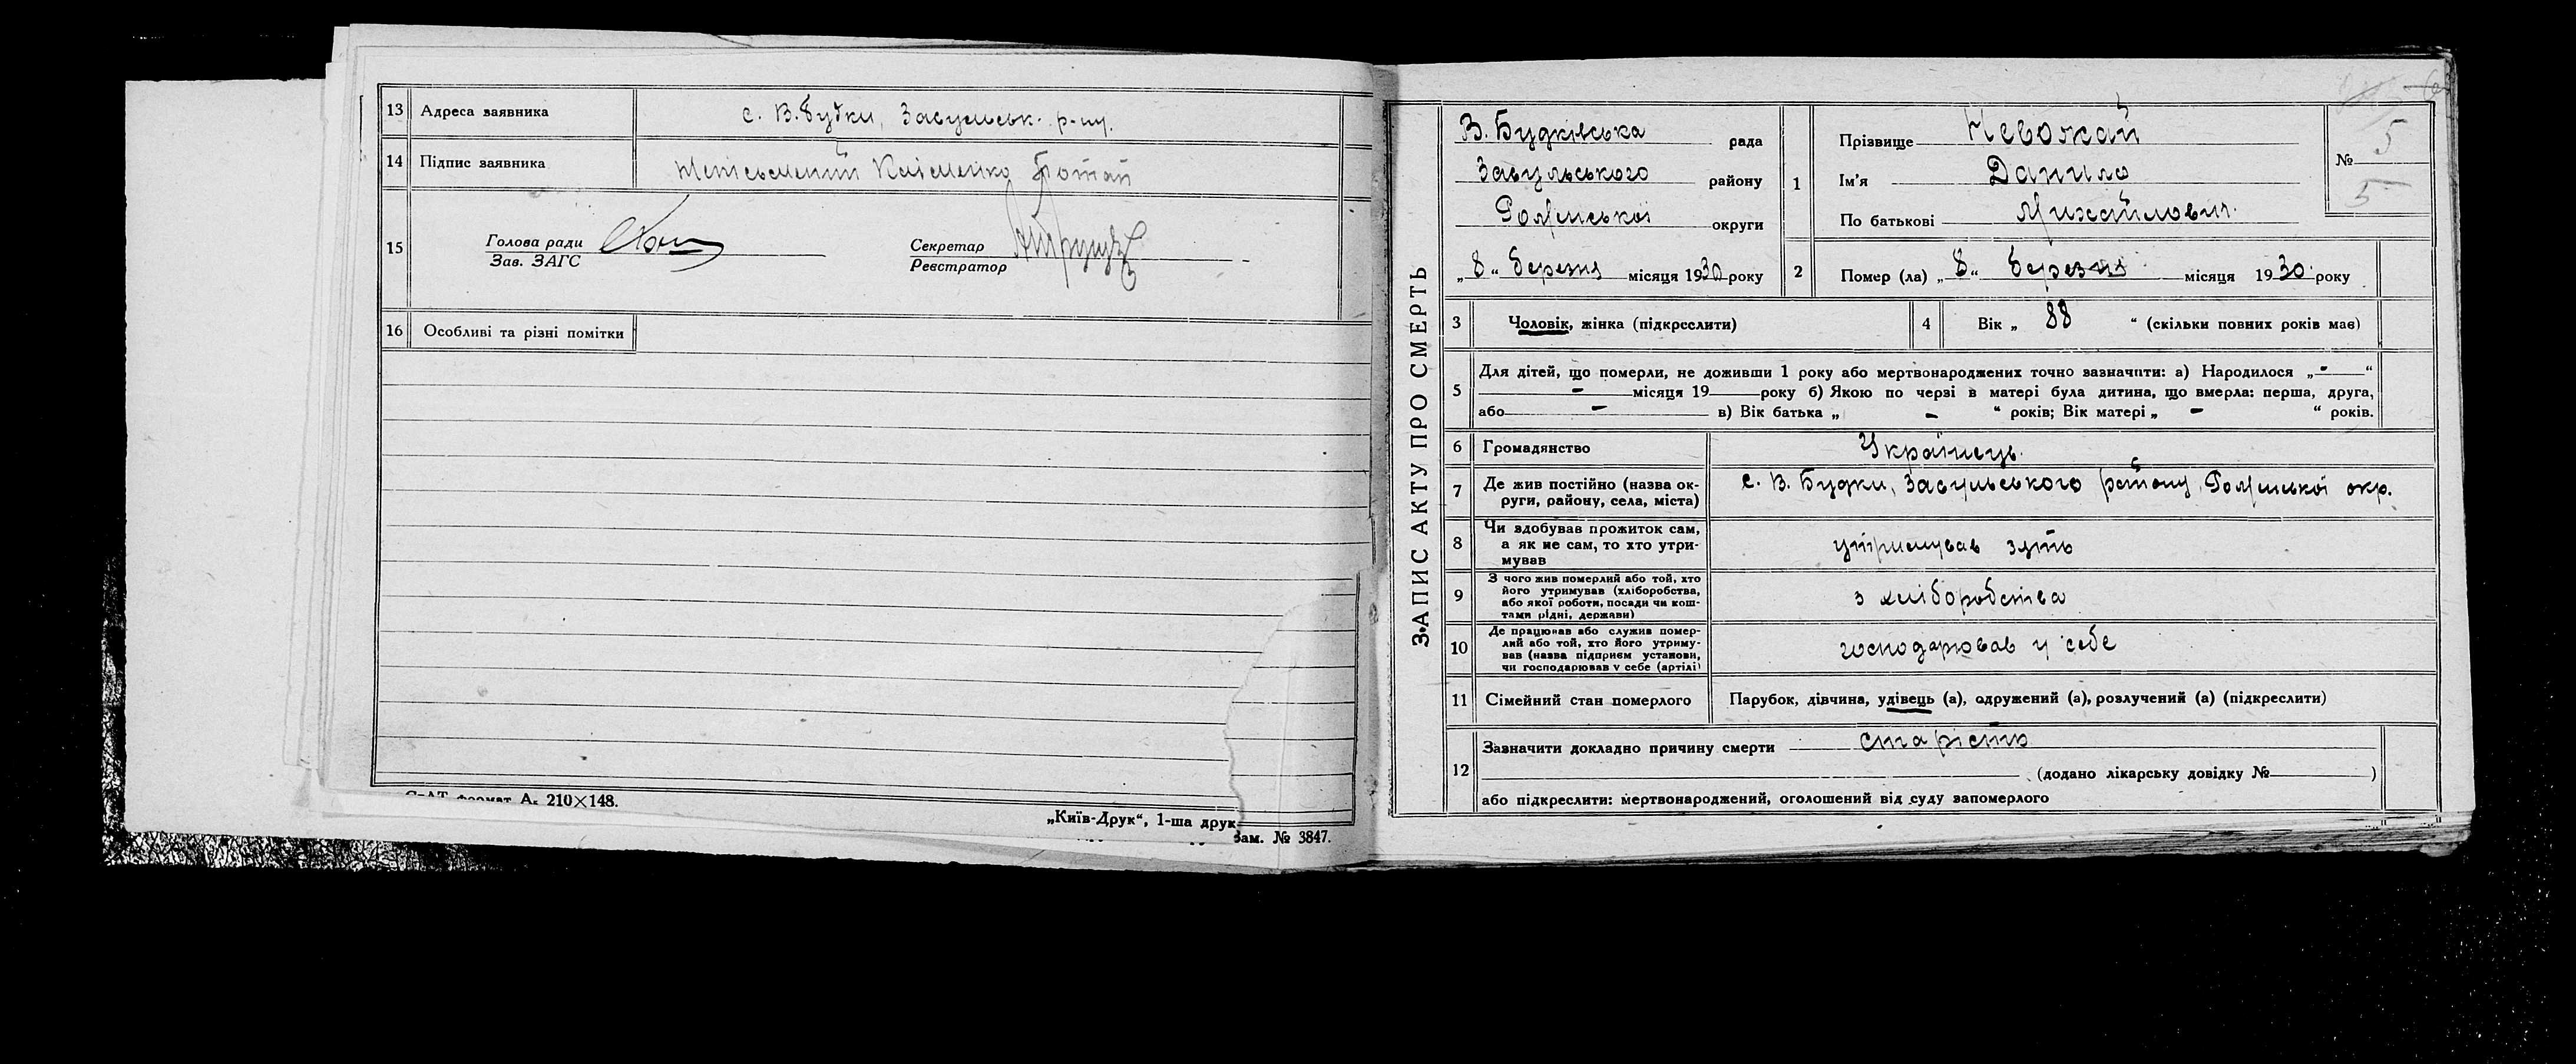 13 Адреса заявника с. В. Будки, Засульськ. р-ну.
14 Підпис заявника Клименко Потап
15 Голова ради
Зав. ЗАГС
Секретар
Реєстратор
16 Особливі та різні помітки
формат А₅ 210×148.
„Київ-Друк“, 1-ша друк
Зам. № 3847.
ЗАПИС АКТУ ПРО СМЕРТЬ
В. Будківська рада
Засульського району
Роменської округи
„8“ березня місяця 1930 року
1 Прізвище Невожай
Ім'я Данило
По батькові Михайлович.
№ 5
5
2 Помер (ла) „8“ березня місяця 1930 року
3 Чоловік, жінка (підкреслити)
4 Вік „ 88 “ (скільки повних років має)
5 Для дітей, що померли, не доживши 1 року або мертвонароджених точно зазначити: а) Народилося „ - “
- місяця 19 року б) Якою по черзі в матері була дитина, що вмерла: перша, друга,
або - в) Вік батька „ - “ років; Вік матері „ - “ років.
6 Громадянство Українець.
7 Де жив постійно (назва ок-
руги, району, села, міста) с. В. Будки, Засульського району, Роменської окр.
8 Чи здобував прожиток сам,
а як не сам, то хто утри-
мував утримував зять
9 З чого жив померлий або той, хто
його утримував (хліборобства,
або якої роботи, посади чи кош-
тами рідні, держави) з хліборобства
10 Де працював або служив помер-
лий або той, хто його утриму-
вав (назва підприєм установи,
чи господарював у себе (артілі) господарював у себе
11 Сімейний стан померлого Парубок, дівчина, удівець (а), одружений (а), розлучений (а) (підкреслити)
12 Зазначити докладно причину смерти старість
(додано лікарську довідку № )
або підкреслити: мертвонароджений, оголошений від суду запомерлого